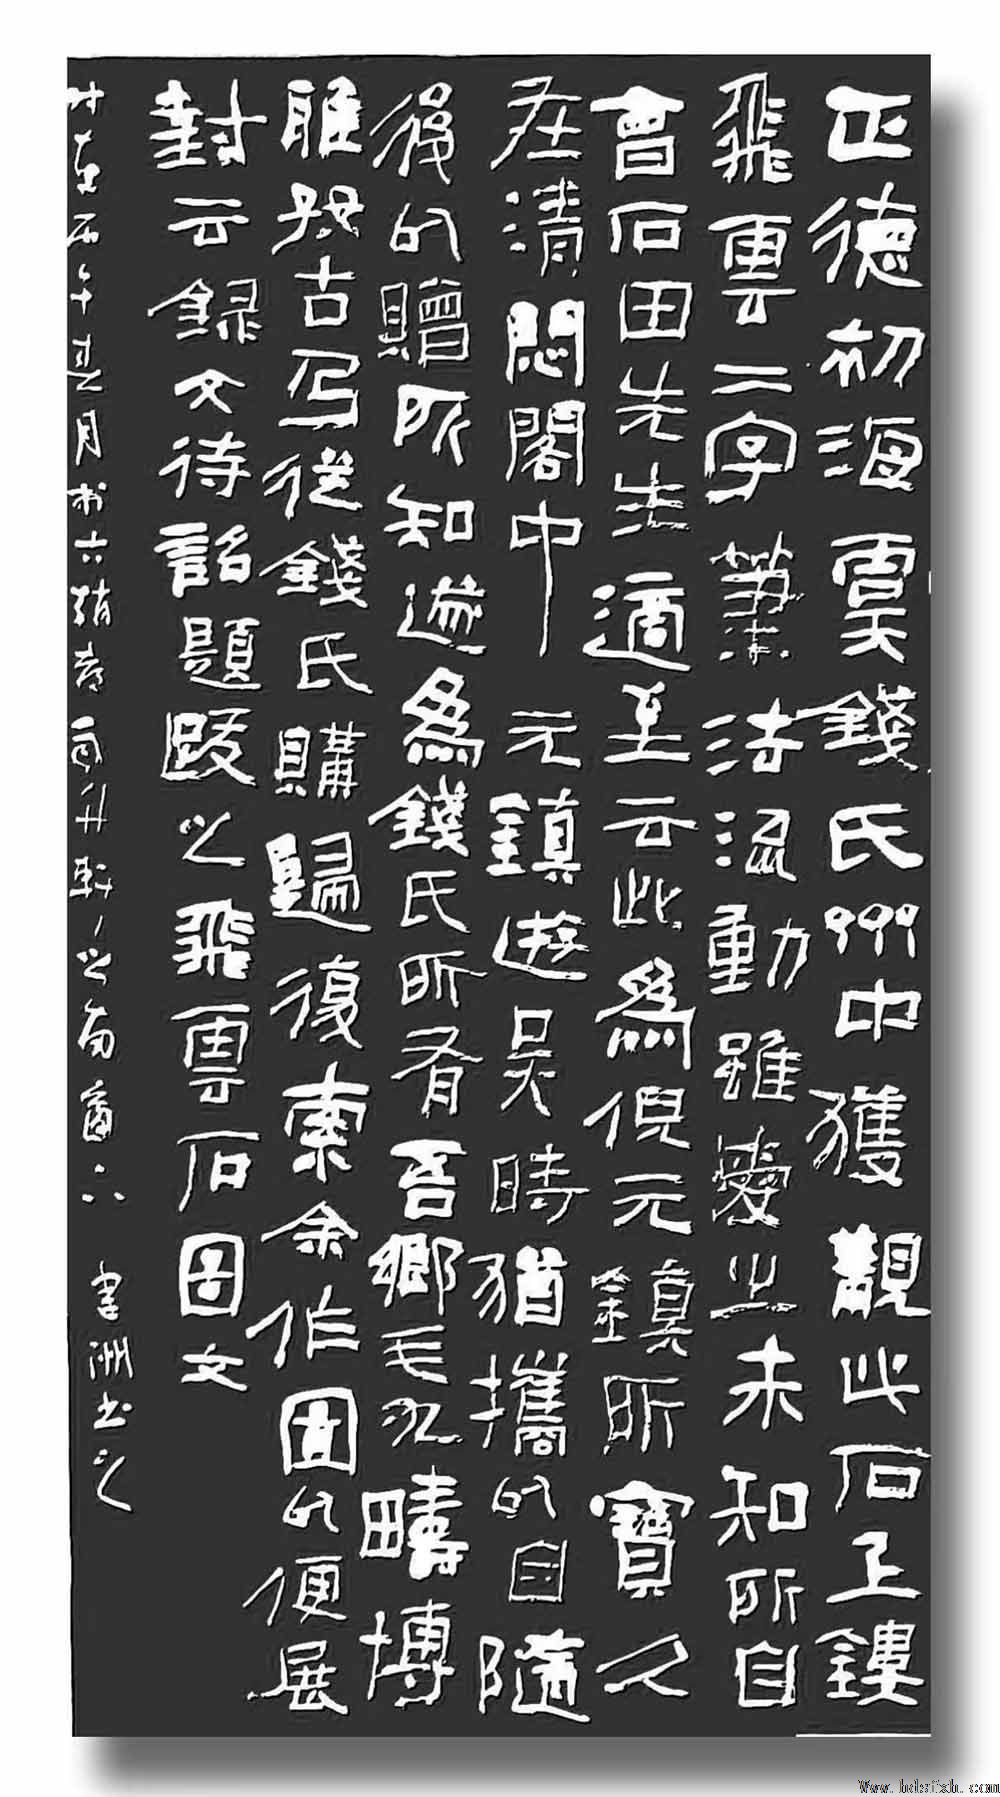 正德初海虞錢氏州中獲觀此石上鏤
飛雲二字筆法流動雖愛之未知所自
會石田先生適至云此為倪元鎮所寶久
在清閟閣中元鎮遊吳時猶攜以自隨
後以贈所知遂為錢氏所有吾鄉毛九疇博
雅好古乃從錢氏購歸復索余作圖以便展
封云録文待詔題跋之飛雲石圖文
午 月 六 之 書洲书之
Www.hdsfxh.com